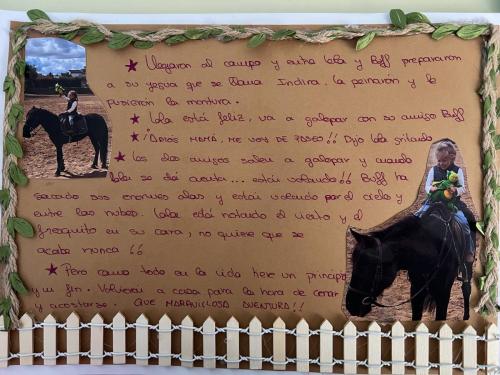 ★ Llegaron al campo y entre Lola y Buff prepararon
a su yegua que se llama Indira. La peinaron y le
pusieron la montura.
★ Lola está feliz, va a galopar con su amigo Buff
★ ¡¡Adiós mamá, me voy de paseo!! Dijo Lola gritando
★ Los dos amigos salen a galopar y cuando
Lola se da cuenta... están volando!! Buff ha
sacado sus enormes alas y están volando por el cielo y
entre las nubes. Lola está notando el viento y el
fresquito en su cara, no quiere que se
acabe nunca!!
★ Pero como todo en la vida tiene un principio
y un fin. Volvieron a casa para la hora de cenar
y acostarse. QUE MARAVILLOSA AVENTURA!!